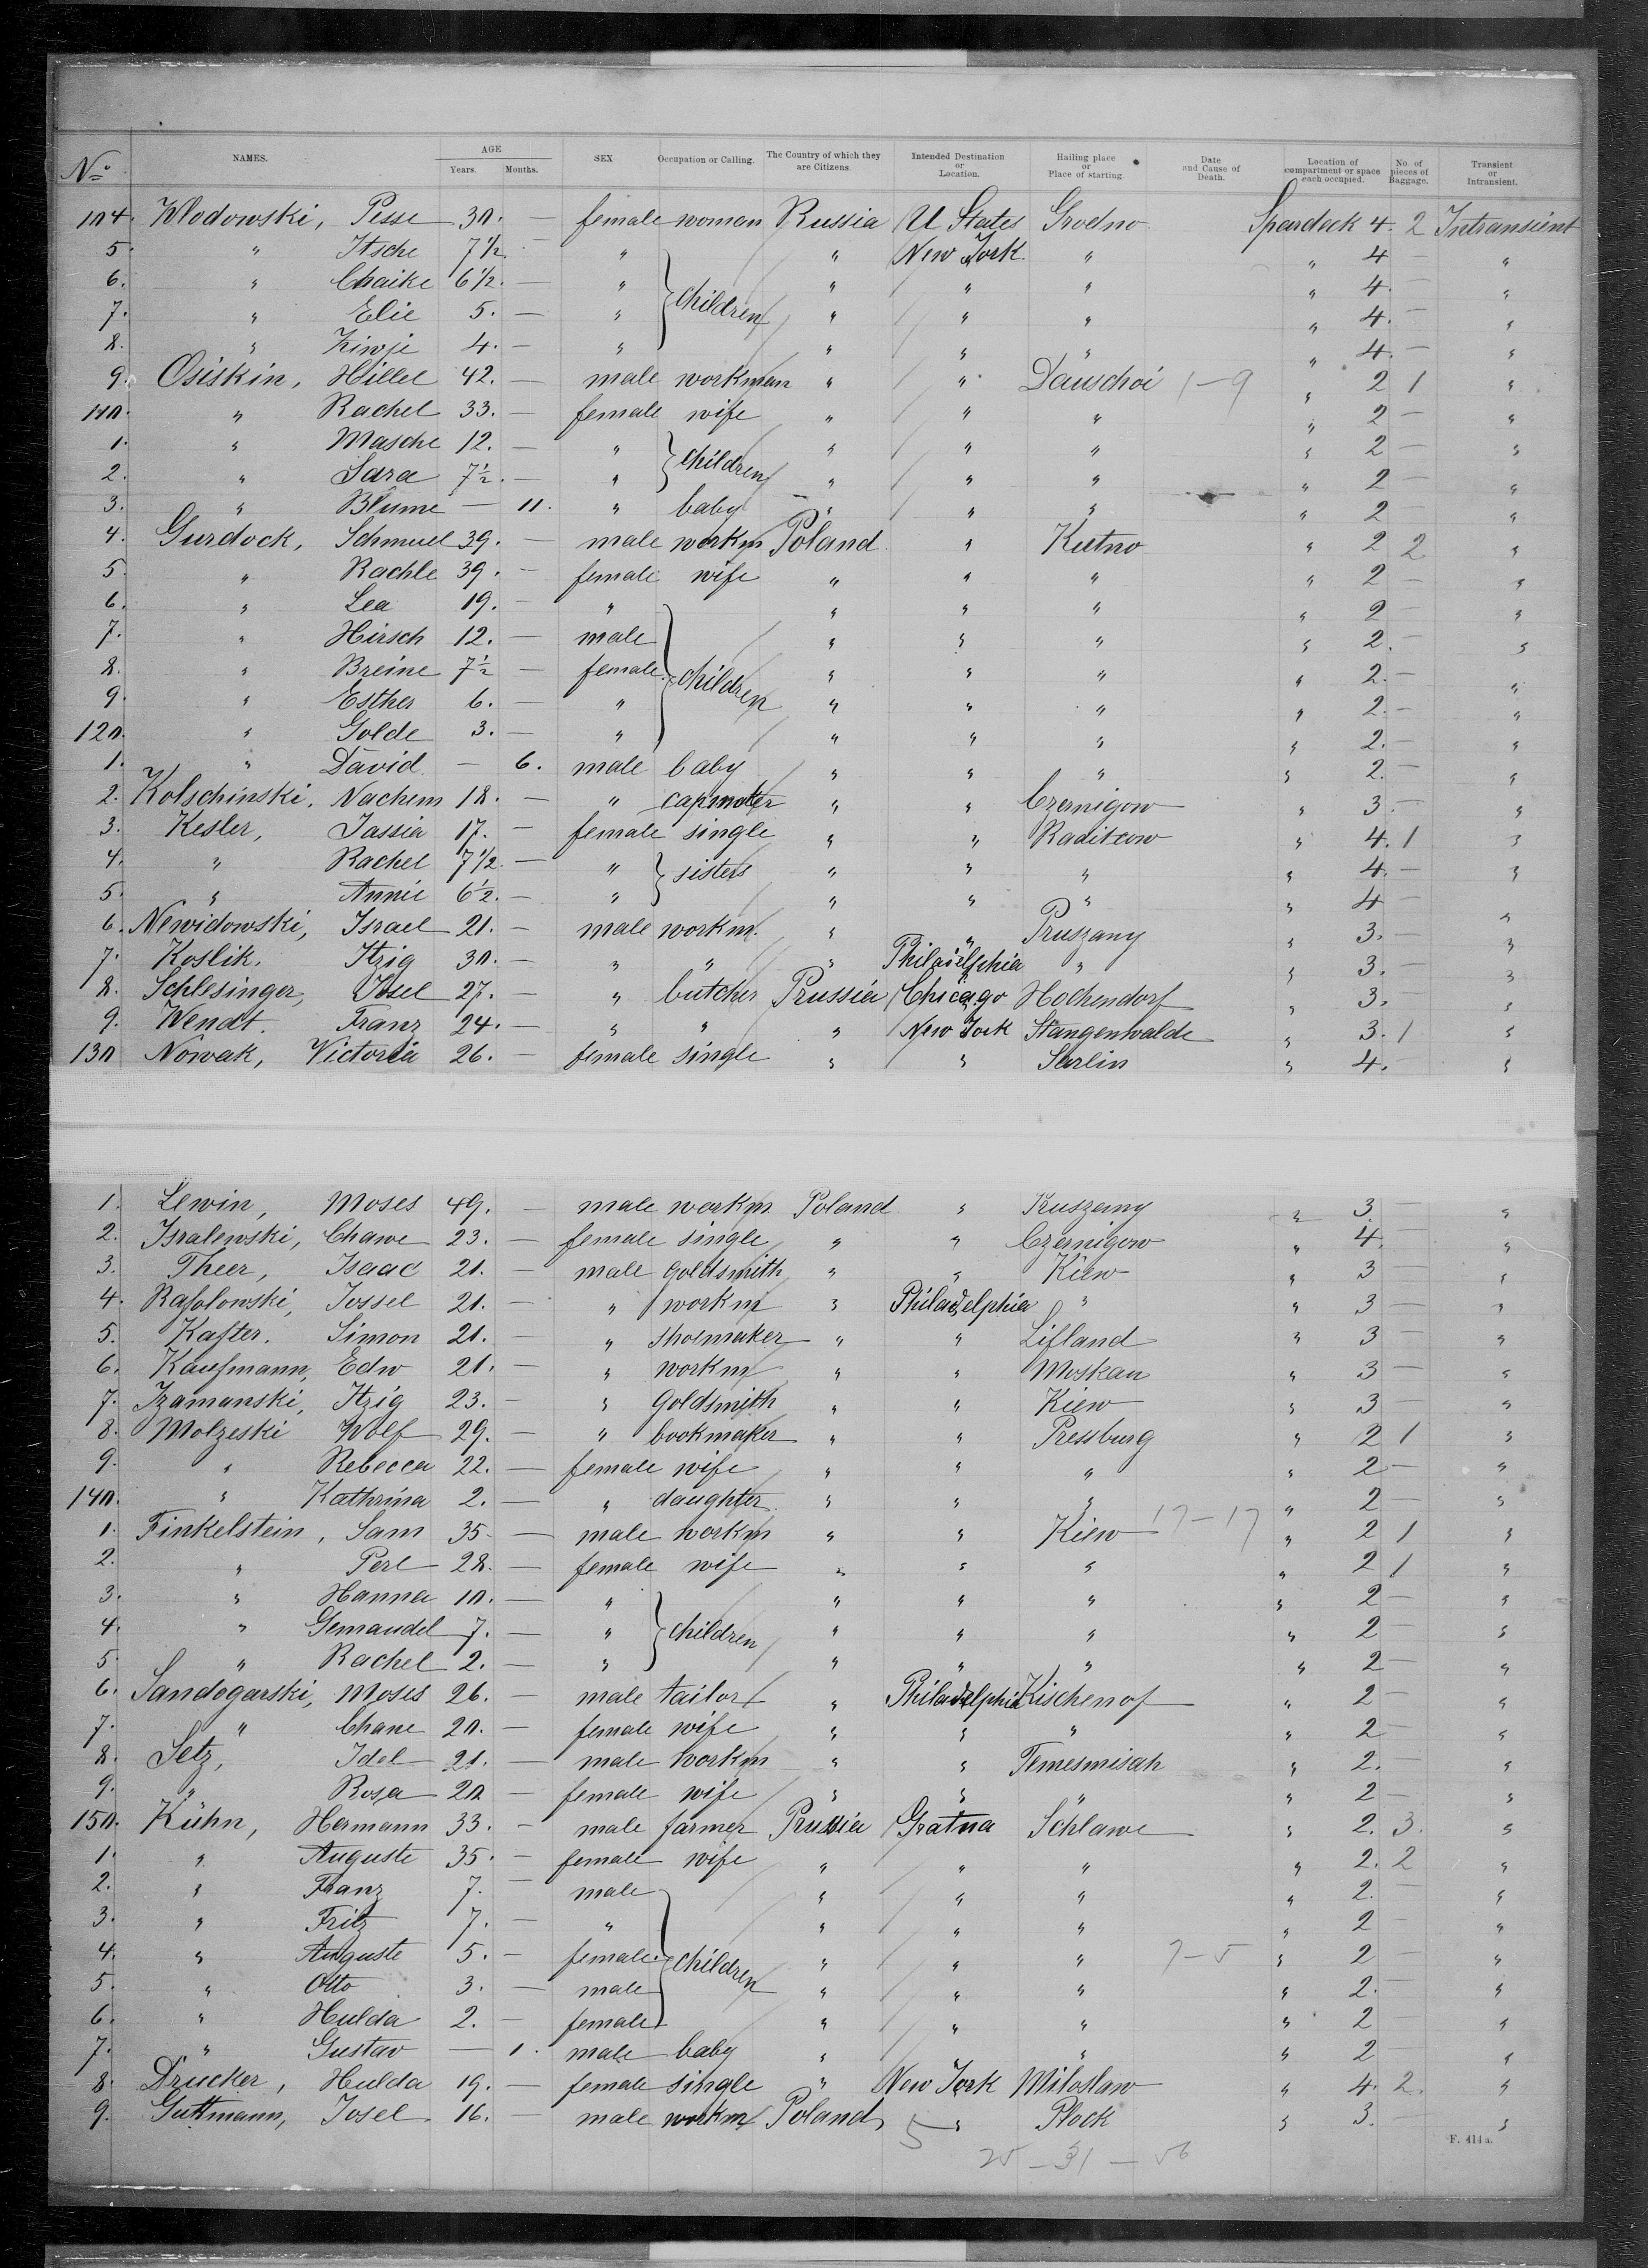 No NAMES. AGE Years. Months. SEX Occupation or Calling. The Country of which they are Citizens. Intended Destination or Location. Hailing place or Place of starting. Date and Cause of Death. Location of compartment or space each occupied. No. of pieces of Baggage. Transient or Intransient.
104. Wlodowski, Pesse 30. — female woman Russia U States Grodno Spardeck 4. 2 Intransient
5. " Itsche 7½. — " " New York " " 4 — "
6. " Chaike 6½. — " children " " " " 4. — "
7. " Elie 5. — " " " " " 4. — "
8. " Ziwje 4. — " " " " " 4. — "
9. Osiskin, Hillel 42. — male workman " " Dauschoi 1-9 " 2 1 "
110. " Rachel 33. — female wife " " " " 2 — "
1. " Masche 12. — " children " " " " 2 — "
2. " Sara 7½. — " " " " " 2 — "
3. " Blume — 11. " baby " " " " 2 — "
4. Gurdock, Schmuel 39. — male workm Poland " Kutno " 2 2 "
5. " Rachle 39. — female wife " " " " 2 — "
6. " Lea 19. — " " " " " 2 — "
7. " Hirsch 12. — male " " " " 2. — "
8. " Breine 7½ — female children " " " " 2. — "
9. " Esther 6. — " " " " " 2. — "
120. " Golde 3. — " " " " " 2. — "
1. " David — 6. male baby " " " " 2. — "
2. Kolschinski, Nachem 18. — " capmater " " Czernigow " 3. — "
3. Kesler, Jassia 17. — female single " " Raditcow " 4. 1 "
4. " Rachel 7½. — " sisters " " " " 4. — "
5. " Annie 6½. — " " " " " 4 —
6. Newidowski, Israel 21. — male workm. " " Pruszany " 3. — "
7. Koslik, Itzig 30. — " " " Philadelphia " " 3. — "
8. Schlesinger, Josel 27. — " butcher Prussia Chicago Hochendorf " 3. "
9. Wendt. Franz 24. — " " " New York Stangenwalde " 3. 1 "
130 Nowak, Victoria 26. — female single " " Serlin " 4. — "
1. Lewin, Moses 49. — male workm Poland " Pruszany " 3. — "
2. Isralewski, Chawe 23. — female single " " Czernigow " 4. — "
3. Theer, Isaac 21. — male goldsmith " " Kiew " 3 — "
4. Rasolowski, Jossel 21. — " workm " Philadelphia " " 3 — "
5. Kafter. Simon 21. — " shoemaker " " Lifland " 3 — "
6. Kaufmann, Edw 21. — " workm " " Moskau " 3 — "
7. Izamanski, Itzig 23. — " Goldsmith " " Kiew " 3 — "
8. Molzeski Wolf 29. — " bookmaker " " Pressburg " 2 1 "
9. " Rebecca 22. — female wife " " " " 2 — "
140. " Kathrina 2. — " daughter " " " " 2 — "
1. Finkelstein, Sam 35. — male workm " " Kiew 17-17 " 2 1 "
2. " Perl 28. — female wife " " " " 2 1 "
3. " Hanna 10. — " " " " " 2 — "
4. " Gemaudel 7. — " children " " " " 2 — "
5. " Rachel 2. — " " " " " 2 — "
6. Sandogarski, Moses 26. — male tailor " Philadelphia Kischenof " 2 — "
7. " Chane 20. — female wife " " " " 2 — "
8. Setz, Idel 21. — male workm " " Temesmisah " 2. — "
9. " Rosa 20 — female wife " " " " 2 — "
150. Kühn, Hermann 33. — male farmer Prussia Gratna Schlawe " 2. 3. "
1. " Auguste 35. — female wife " " " " 2. 2 "
2. " Franz 7. — male " " " " 2. — "
3. " Fritz 7. — " " " " " 2 — "
4. " Auguste 5. — female children " " " 7-5 " 2 — "
5. " Otto 3. — male " " " " 2. — "
6. " Hulda 2. — female " " " " 2 — "
7. " Gustav — 1. male baby " " " " 2 "
8. Drucker, Hulda 19. — female single " New York Miloslaw " 4. 2. "
9. Guttmann, Josel 16. — male workm Poland " Plock " 3. — "
5
25 - 31 - 56
F. 414 a.